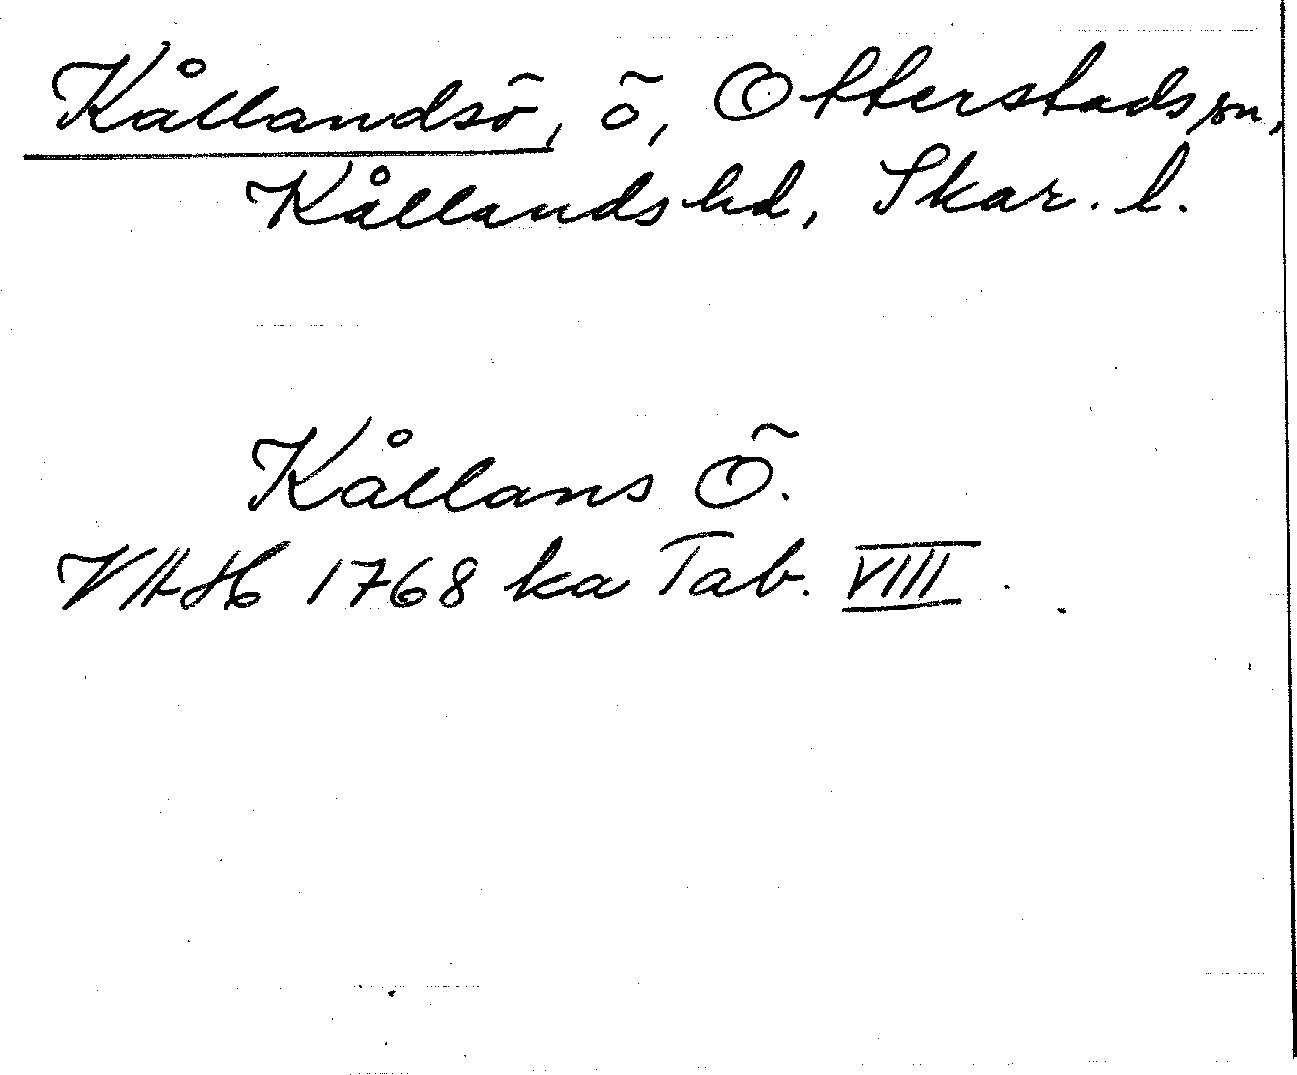 Kållandsö, ö, Otterstads sn,
Kållands hd, Skar. l.
Kållans Ö.
VAH 1768 ka Tab. VIII